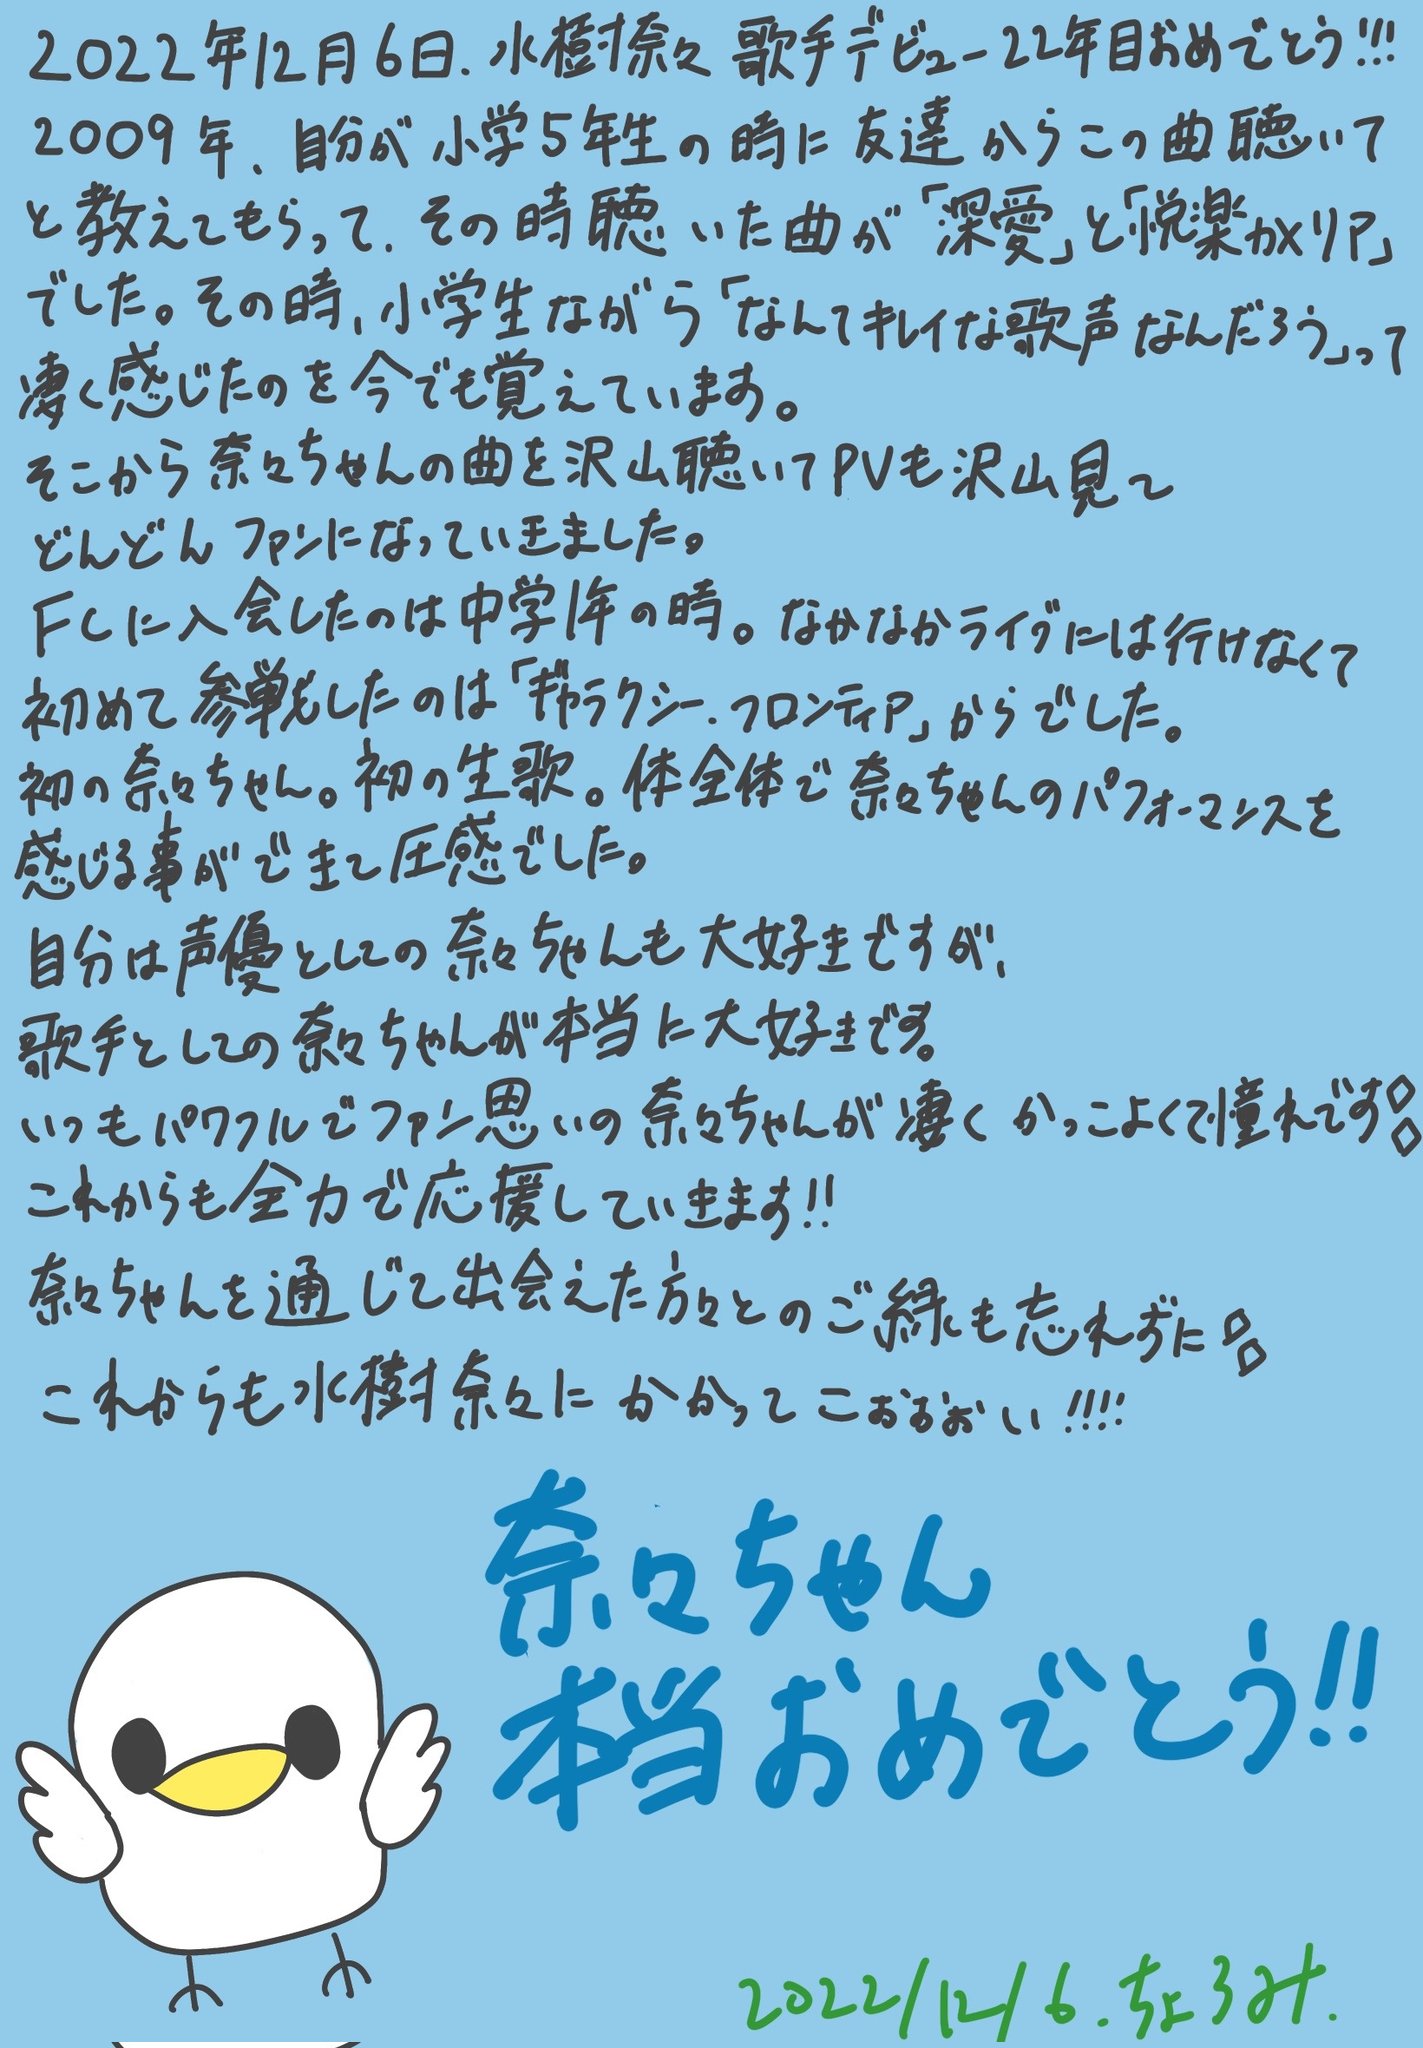 2022年12月6日、水樹奈々 歌手デビュー22年目おめでとう!!!
2009年、自分が小学5年生の時に友達からこの曲聴いて
と教えてもらって、その時聴いた曲が「深愛」と「悦楽カメリア」
でした。その時、小学生ながら「なんてキレイな歌声なんだろう」って
凄く感じたのを今でも覚えています。
そこから奈々ちゃんの曲を沢山聴いてPVも沢山見て
どんどんファンになっていきました。
FCに入会したのは中学1年の時。なかなかライブには行けなくて
初めて参戦したのは「ギャラクシー・フロンティア」からでした。
初の奈々ちゃん。初の生歌。体全体で奈々ちゃんのパフォーマンスを
感じる事ができて圧感でした。
自分は声優としての奈々ちゃんも大好きですが、
歌手としての奈々ちゃんが本当に大好きです。
いつもパワフルでファン思いの奈々ちゃんが凄くかっこよくて憧れです!
これからも全力で応援していきます!!
奈々ちゃんを通じて出会えた方々とのご縁も忘れずに!
これからも水樹奈々にかかってこぉぉぉぉい!!!!
奈々ちゃん
本当おめでとう!!
2022/12/6.ちょろみ.